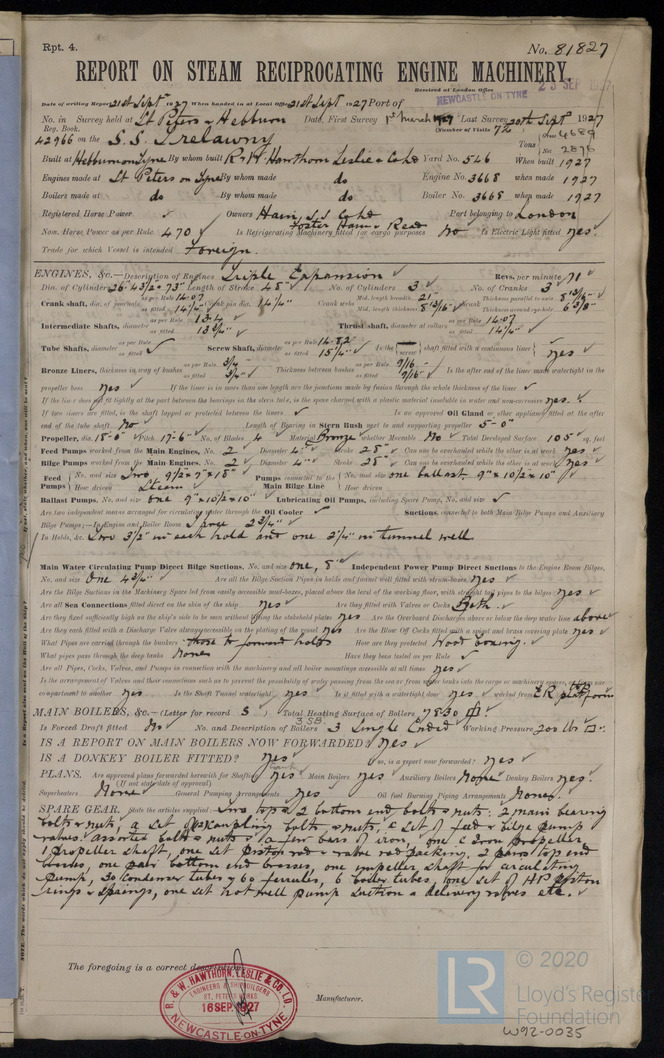 Rpt. 4. No. 81827
REPORT ON STEAM RECIPROCATING ENGINE MACHINERY.
Received at London Office 23 SEP 1927
Date of writing Report 21st Sept 1927 When handed in at Local Office 21st Sept 1927 Port of NEWCASTLE ON TYNE
No. in Survey held at St Peters & Hebburn Date, First Survey 1st March 1927 Last Survey 20th Sept 1927
Reg. Book. (Number of Visits 72
42966 on the S.S. Trelawny Tons Gross 4689
Net 2876
Built at Hebburn on Tyne By whom built R & W Hawthorn Leslie & Co Ld Yard No. 546 When built 1927
Engines made at St Peters on Tyne By whom made do Engine No. 3668 when made 1927
Boilers made at do By whom made do Boiler No. 3668 when made 1927
Registered Horse Power Owners Hain S.S. Co Ld Port belonging to London
Nom. Horse Power as per Rule 470 Is Refrigerating Machinery fitted for cargo purposes No Is Electric Light fitted yes
Trade for which Vessel is intended Foreign.
ENGINES, &c.—Description of Engines Triple Expansion Revs. per minute 71
Dia. of Cylinders 26-43½-73" Length of Stroke 48" No. of Cylinders 3 No. of Cranks 3
Crank shaft, dia. of journals as per Rule 14.07 as fitted 14¼" Crank pin dia. 14¼" Crank webs Mid. length breadth 21" Mid. length thickness 8 13/16" Thickness parallel to axis 8 13/16" Thickness around eye-hole 6 3/8"
Intermediate Shafts, diameter as per Rule 13.4 as fitted 13¾" Thrust shaft, diameter at collars as per Rule 14.07 as fitted 14¼"
Tube Shafts, diameter as per Rule as fitted Screw Shaft, diameter as per Rule 14.82 as fitted 15¼" Is the screw shaft fitted with a continuous liner yes
Bronze Liners, thickness in way of bushes as per Rule 3/4 as fitted 3/4" Thickness between bushes as per Rule 9/16 as fitted 9/16" Is the after end of the liner made watertight in the
propeller boss yes If the liner is in more than one length are the junctions made by fusion through the whole thickness of the liner
If the liner does not fit tightly at the part between the bearings in the stern tube, is the space charged with a plastic material insoluble in water and non-corrosive yes.
If two liners are fitted, is the shaft lapped or protected between the liners Is an approved Oil Gland or other appliance fitted at the after
end of the tube shaft No Length of Bearing in Stern Bush next to and supporting propeller 5'-0"
Propeller, dia. 18'-0" Pitch 17'-6" No. of Blades 4 Material Bronze whether Moveable No Total Developed Surface 105 sq. feet
Feed Pumps worked from the Main Engines, No. 2 Diameter 4" Stroke 28" Can one be overhauled while the other is at work yes
Bilge Pumps worked from the Main Engines, No. 2 Diameter 4" Stroke 28" Can one be overhauled while the other is at work yes
Feed Pumps No. and size Two 9½ × 7 × 18" Pumps connected to the Main Bilge Line No. and size one ballast 9" × 10½ × 10"
How driven Steam How driven
Ballast Pumps, No. and size one 9" × 10½ × 10" Lubricating Oil Pumps, including Spare Pump, No. and size
Are two independent means arranged for circulating water through the Oil Cooler Suctions, connected to both Main Bilge Pumps and Auxiliary
Bilge Pumps;—In Engine and Boiler Room 2¾"
In Holds, &c. Two 3½" in each hold and one 2¼" in tunnel well
Main Water Circulating Pump Direct Bilge Suctions, No. and size one, 8" Independent Power Pump Direct Suctions to the Engine Room Bilges,
No. and size One 4¾" Are all the Bilge Suction Pipes in holds and tunnel well fitted with strum-boxes yes
Are the Bilge Suctions in the Machinery Space led from easily accessible mud-boxes, placed above the level of the working floor, with straight tail pipes to the bilges yes.
Are all Sea Connections fitted direct on the skin of the ship yes Are they fitted with Valves or Cocks Both.
Are they fixed sufficiently high on the ship's side to be seen without lifting the stokehold plates yes Are the Overboard Discharges above or below the deep water line above
Are they each fitted with a Discharge Valve always accessible on the plating of the vessel yes Are the Blow Off Cocks fitted with a spigot and brass covering plate yes
What Pipes are carried through the bunkers those to forward holds How are they protected Wood boxing.
What pipes pass through the deep tanks None Have they been tested as per Rule
Are all Pipes, Cocks, Valves, and Pumps in connection with the machinery and all boiler mountings accessible at all times yes
Is the arrangement of Valves and their connections such as to prevent the possibility of water passing from the sea or from water tanks into the cargo or machinery spaces, or from one
compartment to another yes Is the Shaft Tunnel watertight yes Is it fitted with a watertight door yes worked from E.R. top platform
MAIN BOILERS, &c.—(Letter for record S) Total Heating Surface of Boilers 7830
3 SB
Is Forced Draft fitted No No. and Description of Boilers 3 Single Ended Working Pressure 200 lbs
IS A REPORT ON MAIN BOILERS NOW FORWARDED? Yes
IS A DONKEY BOILER FITTED? Yes If so, is a report now forwarded? yes
PLANS. Are approved plans forwarded herewith for Shafting yes Main Boilers yes Auxiliary Boilers None Donkey Boilers yes.
(If not state date of approval)
Superheaters None General Pumping Arrangements yes Oil fuel Burning Piping Arrangements None.
SPARE GEAR. State the articles supplied:— Two top & 2 bottom end bolts & nuts. 2 main bearing
bolts & nuts, a set of coupling bolts & nuts, a set of feed & bilge pump
valves. assorted bolts & nuts. a few bars of iron, one C Iron propeller
1 propeller shaft, one set piston rod & valve rod packing. 2 pairs top end
brasses, one pair bottom end brasses, one impeller shaft for circulating
pump, 30 condenser tubes & 60 ferrules, 6 boiler tubes, one set of H.P. piston
rings & springs, one set hot well pump suction & delivery valves etc.
The foregoing is a correct description,
R. & W. HAWTHORN, LESLIE & CO. LD.
ENGINEERS & SHIPBUILDERS
ST. PETER'S WORKS
16 SEP. 1927
NEWCASTLE-ON-TYNE
Manufacturer.
LR © 2020
Lloyd's Register
Foundation
W92-0035